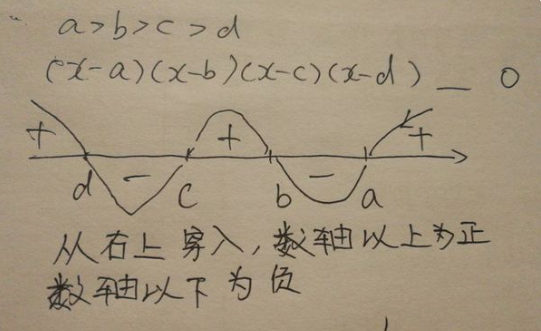 a>b>c>d
(x-a)(x-b)(x-c)(x-d) _ 0
+ + +
d - c b - a
从右上穿入,数轴以上为正
数轴以下为负